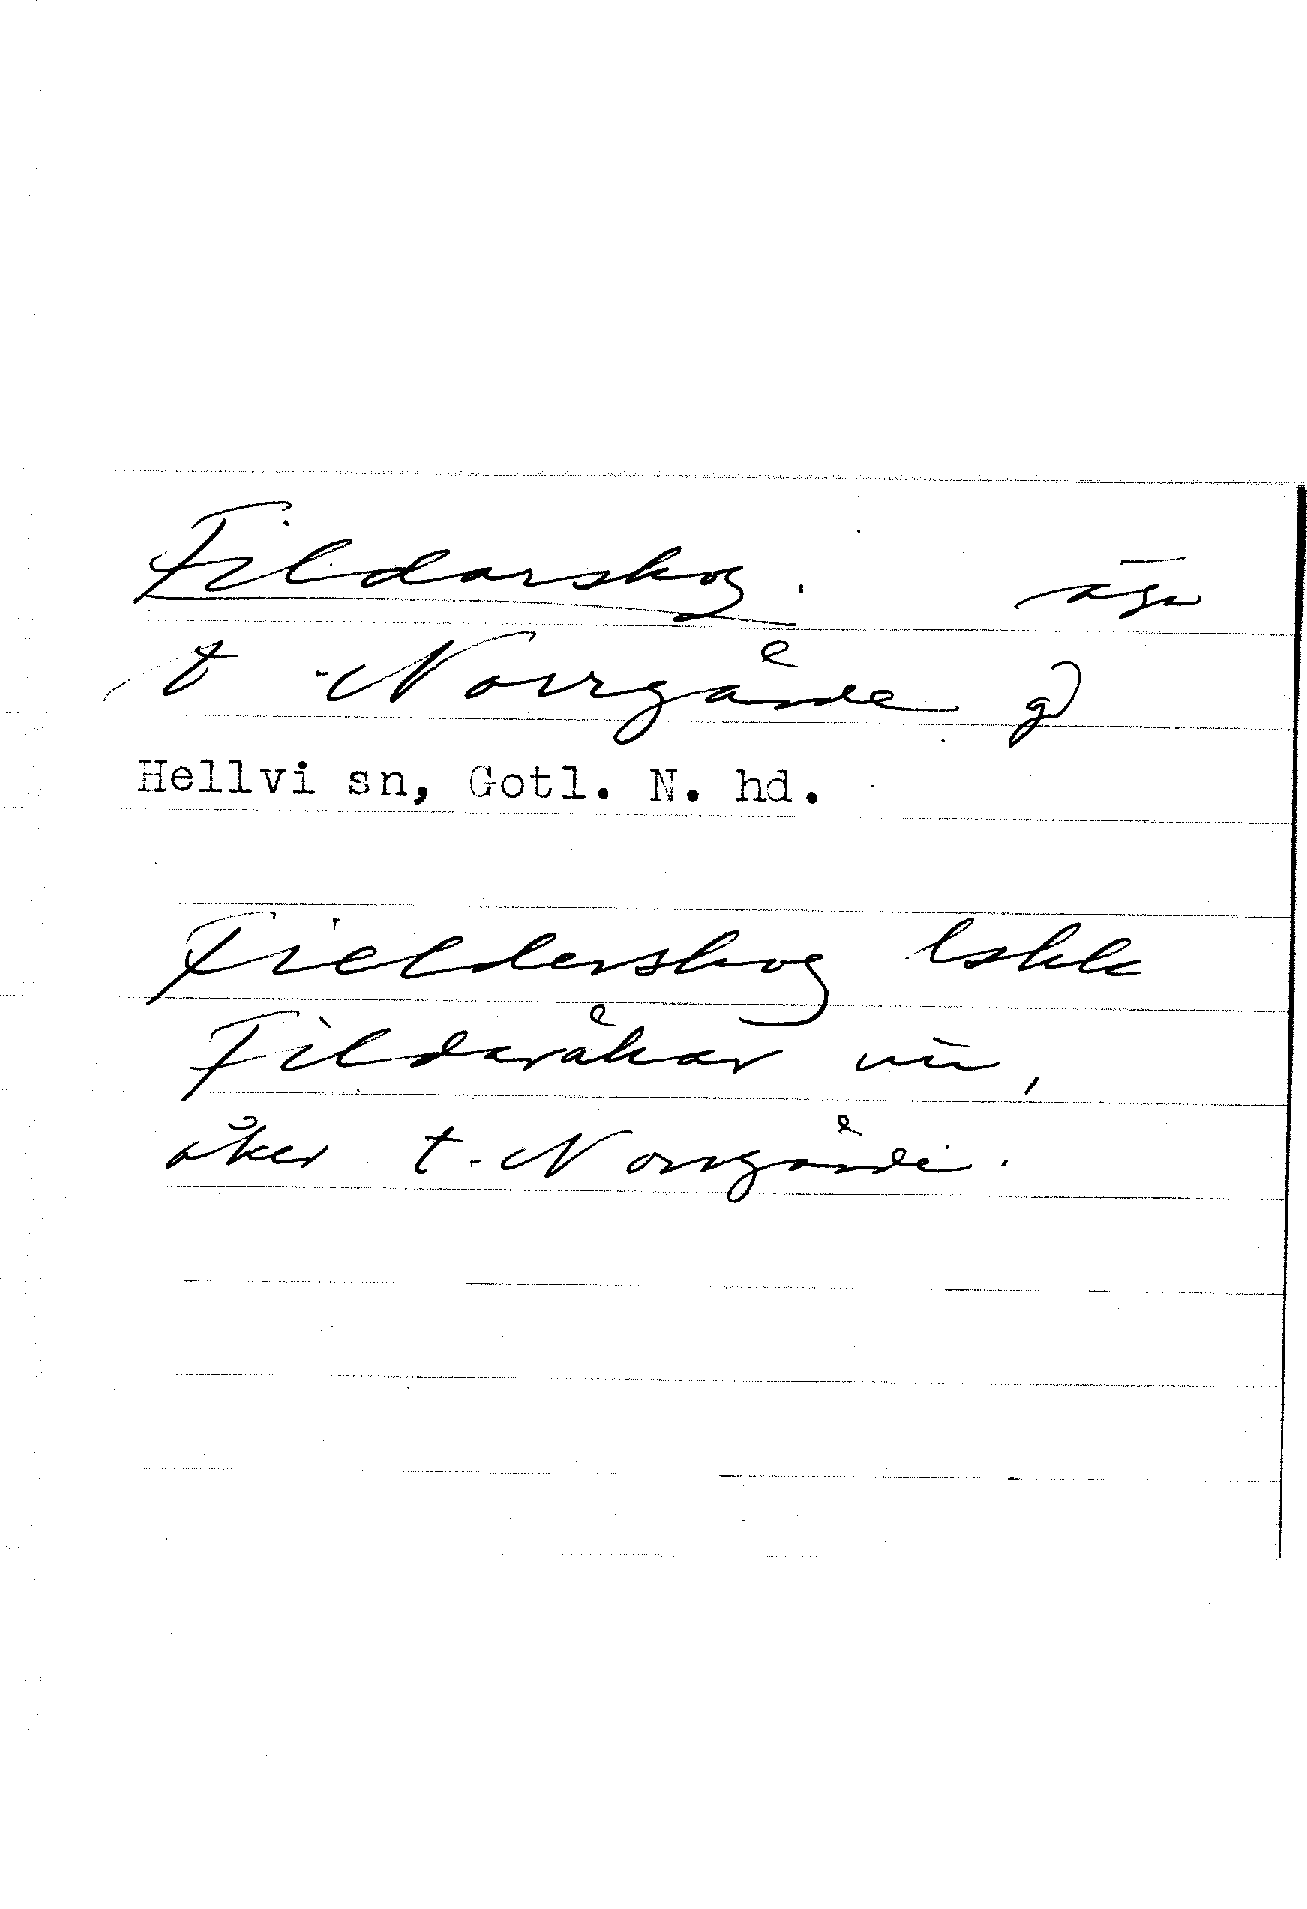 Fildarskog. äga
t Norrgårde gd
Hellvi sn, Gotl. N. hd.
Fielderskog lskk
Fildaråkar
åker t. Norrgårde.